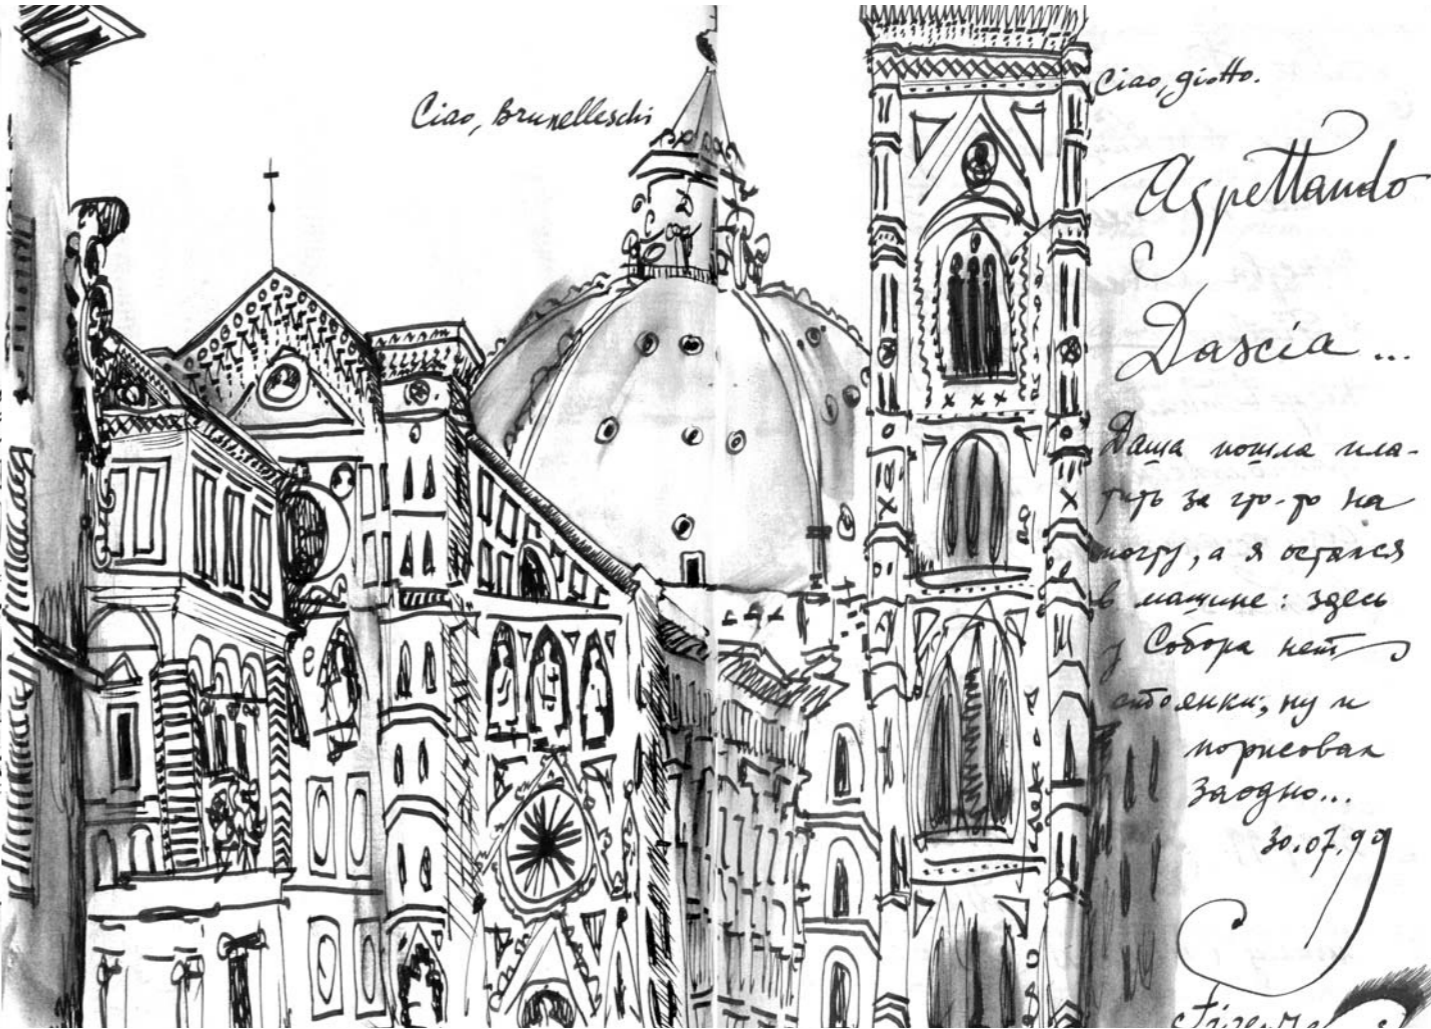 Ciao, Brunelleschi
Ciao, giotto.
Aspettando
Dascia ...
Даша пошла пла-
тить за что-то на
почту, а я остался
в машине: здесь
у Собора нет
стоянки; ну и
порисовал
заодно...
30.07.99
Firenze